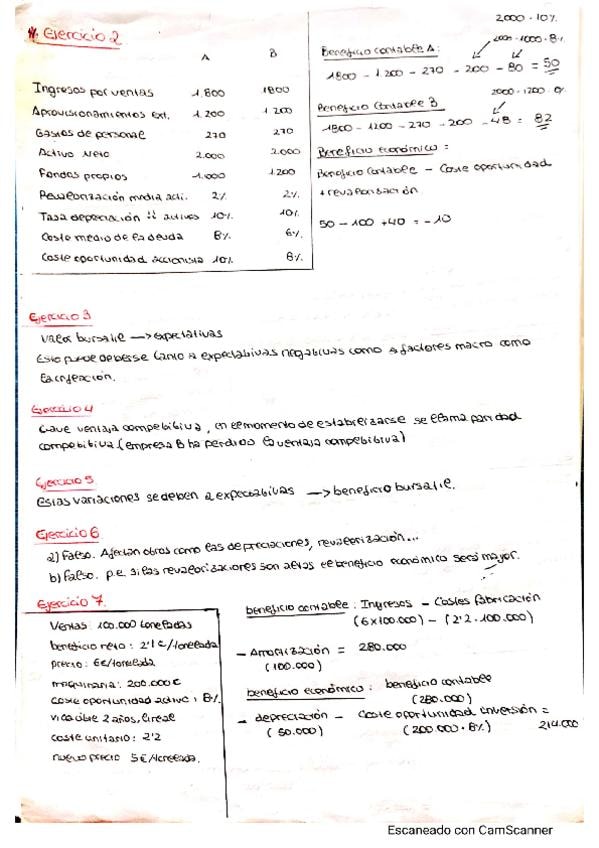 Ejercicio 2
A B
Ingresos por ventas 1.800 1800
Aprovisionamientos ext. 1.200 1200
Gastos de personal 270 270
Activo Neto 2.000 2.000
Fondos propios 1.000 1.200
Revalorización media acti. 2% 2%
Tasa depreciación activos 10% 10%
Coste medio de la deuda 8% 6%
Coste oportunidad accionista 10% 8%
2000 · 10%
2000 - 1000 · 8%
Beneficio contable A:
1800 - 1.200 - 270 - 200 - 80 = 50
Beneficio Contable B
1800 - 1200 - 270 - 200 - 48 = 82
Beneficio económico:
Beneficio Contable - Coste oportunidad
+ revalorización
50 - 100 + 40 = -10
Ejercicio 3
Valor bursatil → expectativas
Esto puede deberse tanto a expectativas negativas como a factores macro como
la inflación.
Ejercicio 4
Clave ventaja competitiva, en el momento de estabilizarse se llama paridad
competitiva (empresa B ha perdido la ventaja competitiva)
Ejercicio 5
Estas variaciones se deben a expectativas → beneficio bursatil.
Ejercicio 6
a) Falso. Afectan otros como las depreciaciones, revalorización...
b) Falso. p.e. si las revalorizaciones son altas el beneficio económico será mayor.
Ejercicio 7.
Ventas: 100.000 toneladas
beneficio neto: 2'1 €/tonelada
precio: 6€/tonelada
maquinaria: 200.000€
coste oportunidad activo: 8%
vida útil 2 años, lineal
coste unitario: 2'2
nuevo precio 5€/tonelada.
beneficio contable: Ingresos - Costes fabricación
(6x100.000) - (2'2 · 100.000)
- Amortización = 280.000
(100.000)
beneficio económico: beneficio contable
(280.000)
- depreciación - Coste oportunidad inversión =
(50.000) (200.000 · 8%) 214.000
Escaneado con CamScanner